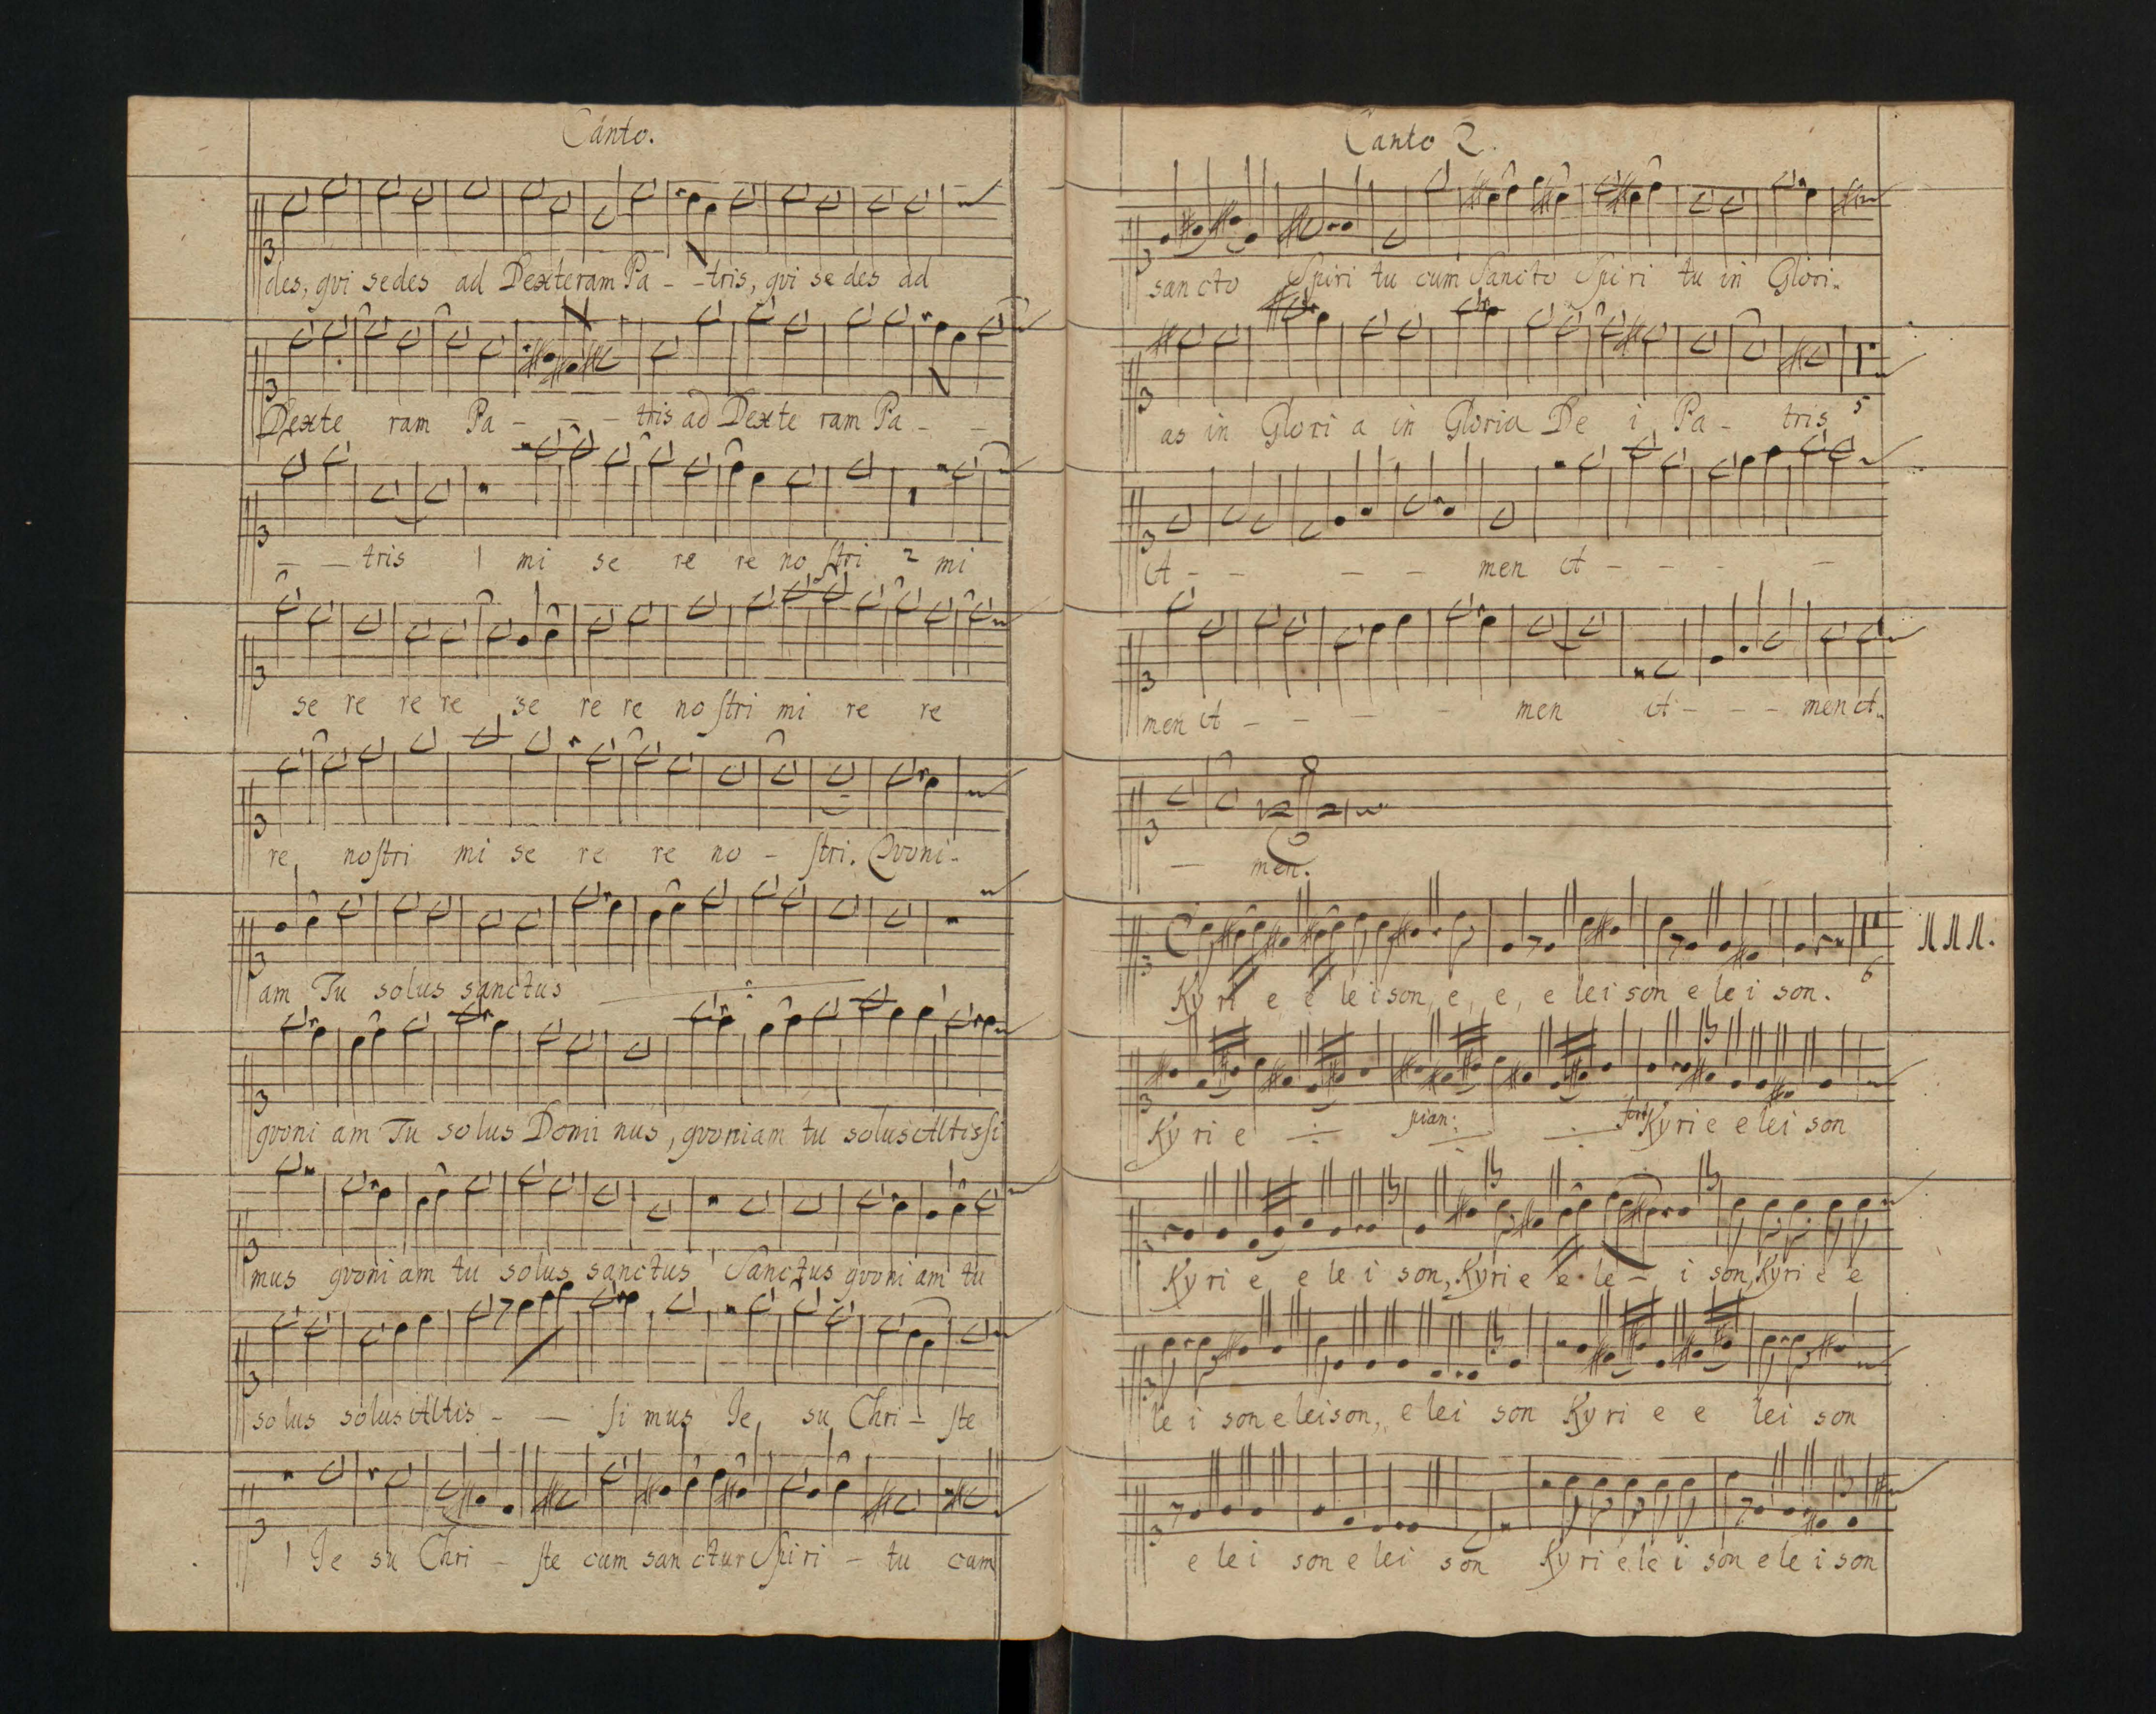 Canto.
des, qvi sedes ad Dexteram Pa - - tris, qvi se des ad
Dexte ram Pa - - - tris ad Dexte ram Pa - -
- - tris 1 mi se re re no ſtri 2 mi
se re re re se re re no ſtri mi re re
re noſtri mi se re re no - ſtri. Qvoni-
am Tu solus sanctus
qvoni am Tu so lus Domi nus, qvoniam tu solus Altisſi
mus qvoni am tu solus sanctus Sanctus qvoni am tu
solus solus Altis - - ſi mus Je, su Chri - ſte
1 Je su Chri - ſte cum san ctur Spi ri - tu cum
Canto 2.
san cto Spiri tu cum Sancto Spi ri tu in Glori-
as in Glori a in Gloria De i Pa - tris 5
A - - - - men A - - - -
men A - - - - men A - - - men A-
- men.
Ky ri e e lei son, e, e, e lei son e le i son. 6
111.
Ky ri e pian: for Kyri e e lei son
Ky ri e e le i son, Kyri e e le - i son, Kyri e e
le i son e leison, e lei son Ky ri e e lei son
e le i son e lei son Ky ri e le i son e le i son